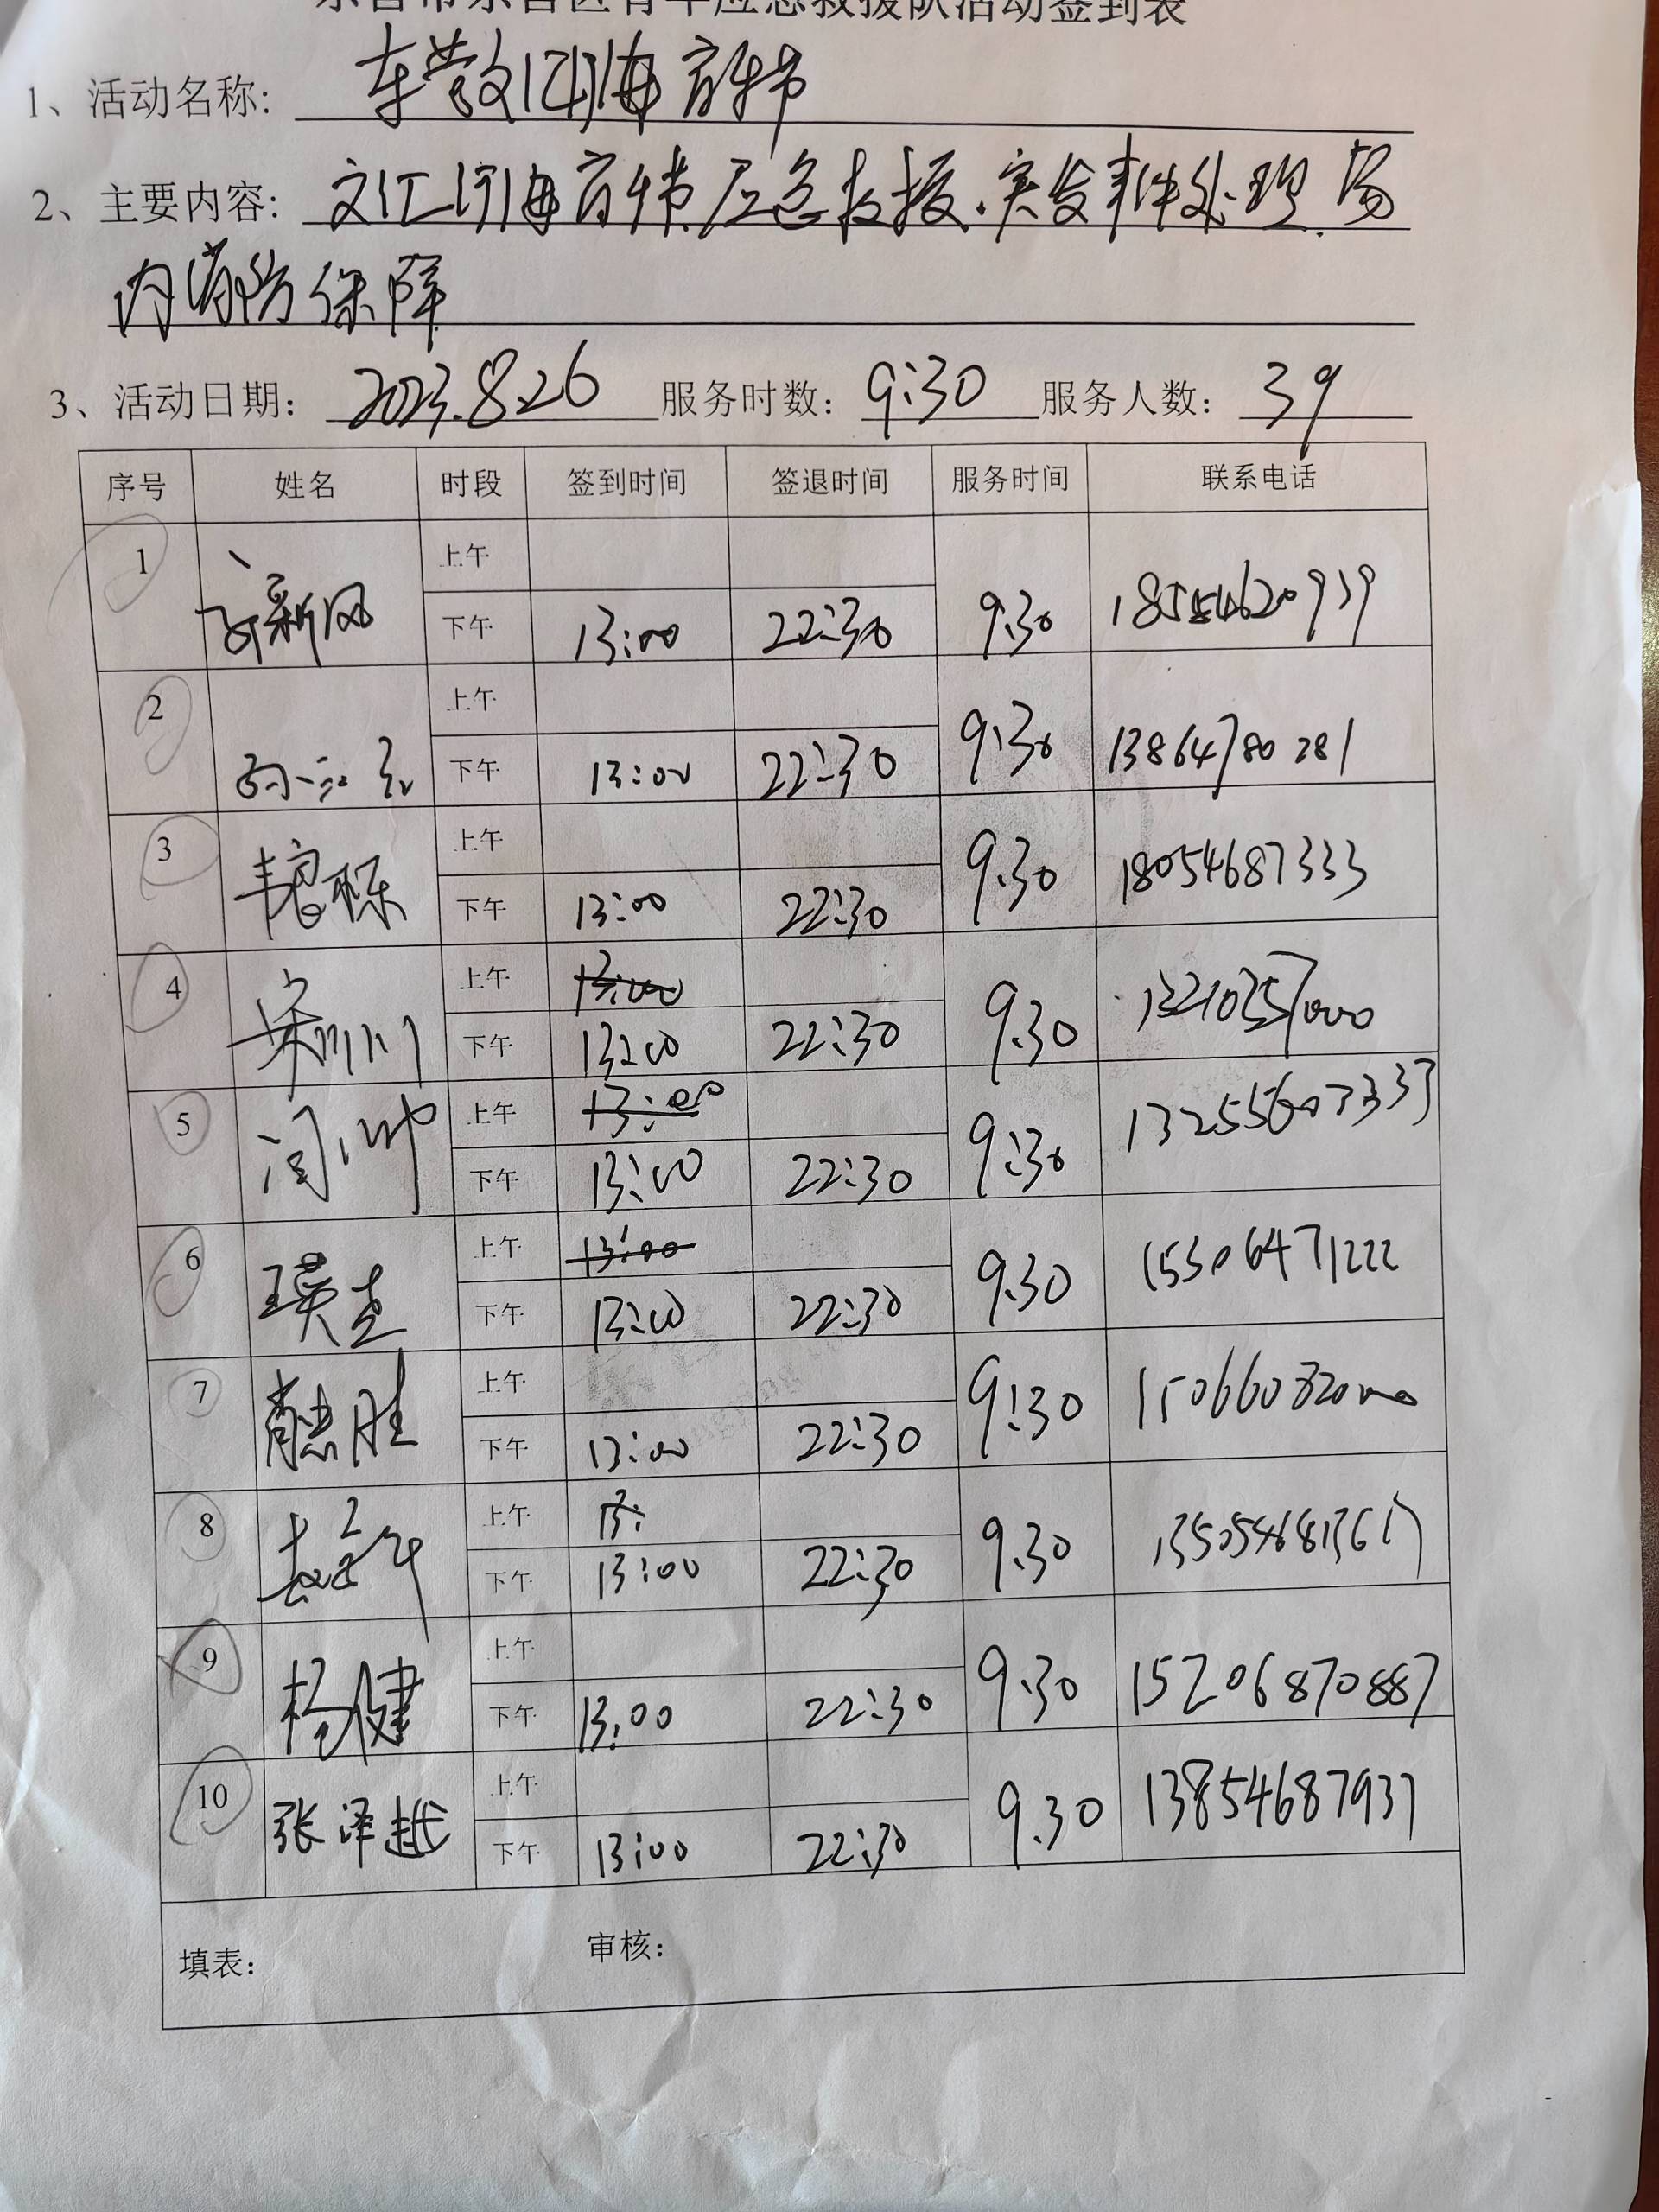 东营市东营区青年应急救援队活动签到表
1、活动名称: 东营文汇河海音乐节
2、主要内容: 文汇河海音乐节应急救援.突发事件处理.场
内消防保障
3、活动日期: 2023.8.26 服务时数: 9:30 服务人数: 39
序号 姓名 时段 签到时间 签退时间 服务时间 联系电话
1 新风 上午
下午 13:00 22:30 9:30 18554620939
2 上午
下午 13:00 22:30 9:30 13864780281
3 上午
下午 13:00 22:30 9.30 18054687333
4 上午 13:00
下午 13:00 22:30 9.30 13210357000
5 闫帅 上午 13:00
下午 13:00 22:30 9:30
6 上午 13:00
下午 13:00 22:30 9.30 15306471222
7 上午
下午 13:00 22:30 9:30 15066082000
8 上午 13:
下午 13:00 22:30 9.30
9 杨健 上午
下午 13:00 22:30 9.30 15206870887
10 张泽越 上午
下午 13:00 22:30 9.30 13854687937
填表: 审核: